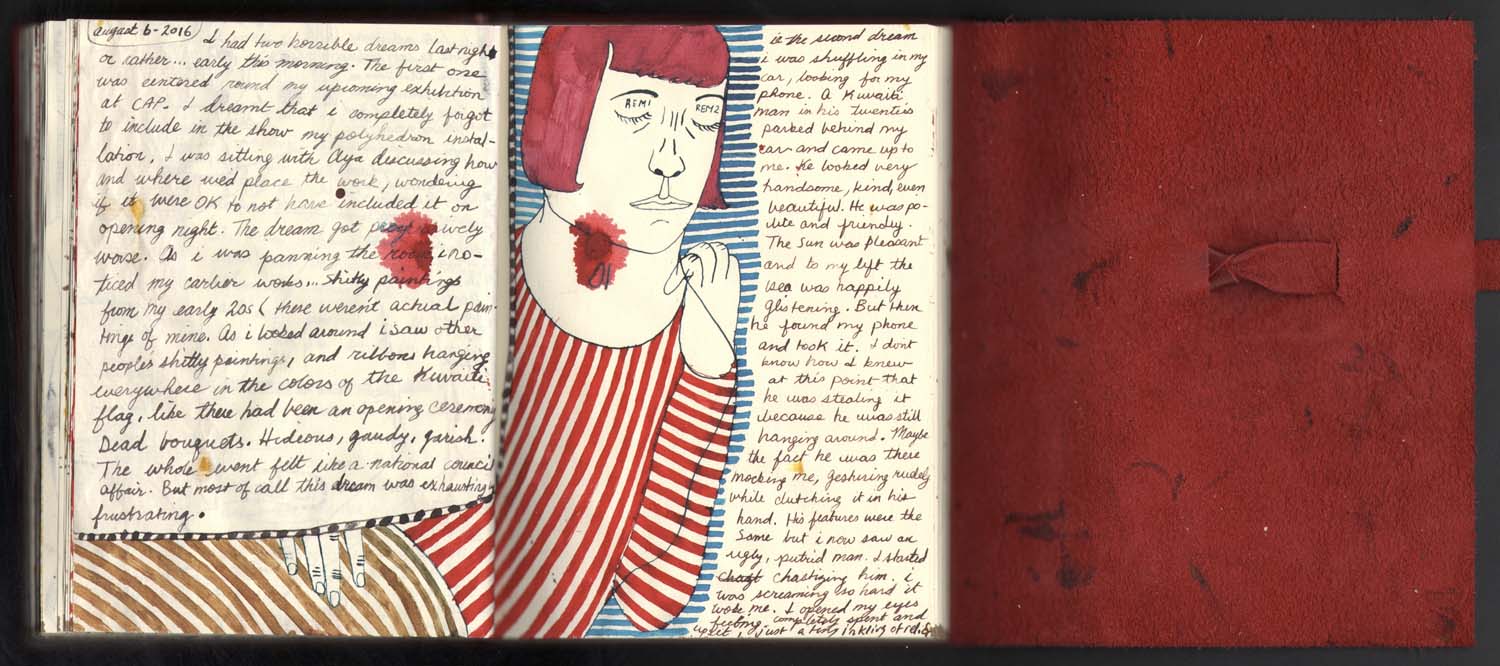 august 6-2016
I had two horrible dreams last night
or rather... early this morning. The first one
was centered round my upcoming exhibition
at CAP. I dreamt that i completely forgot
to include in the show my polyhedron instal-
lation. I was sitting with Aya discussing how
and where we'd place the work, wondering
if it were OK to not have included it on
opening night. The dream got
worse. As i was panning the room i no-
ticed my earlier works... shitty paintings
from my early 20s (these weren't actual pain-
tings of mine. As i looked around i saw other
peoples shitty paintings, and ribbons hanging
everywhere in the colors of the Kuwaiti
flag, like there had been an opening ceremony
Dead bouquets. Hideous, gaudy, garish.
The whole event felt like a national council
affair. But most of all this dream was exhausting
frustrating.
REM1 REM2
in the second dream
i was shuffling in my
car, looking for my
phone. A Kuwaiti
man in his twenties
parked behind my
car and came up to
me. He looked very
handsome, kind, even
beautiful. He was po-
lite and friendly.
The sun was pleasant
and to my left the
sea was happily
glistening. But then
he found my phone
and took it. I dont
know how I knew
at this point that
he was stealing it
because he was still
hanging around. Maybe
the fact he was there
mocking me, gesturing rudely
while clutching it in his
hand. His features were the
Same but i now saw an
ugly, putrid man. I started
chastizing him. i
was screaming so hard it
woke me. I opened my eyes
feeling completely spent and
upset, just a tiny inkling of